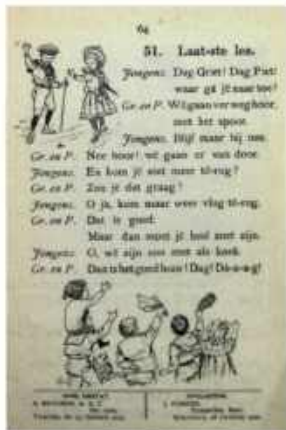 64
51. Laat-ste les.
Jongens: Dag Griet! Dag Piet!
waar ga jé naar toe?
Gr. en P. Wé gaan ver weg hoor,
met het spoor.
Jongens: Blijf maar bij ons.
Gr. en P. Nee hoor! wé gaan er van door.
Jongens: En kom jé niet meer té-rug?
Gr. en P. Zou jé dat graag?
Jongens: O ja, kom maar weer vlug té-rug.
Gr. en P. Dat is goed.
Maar dan moet jé heel zoet zijn.
Jongens: O, wé zijn zoo zoet als koek.
Gr. en P. Dan is het goed hoor! Dag! Dá-a-a-g!